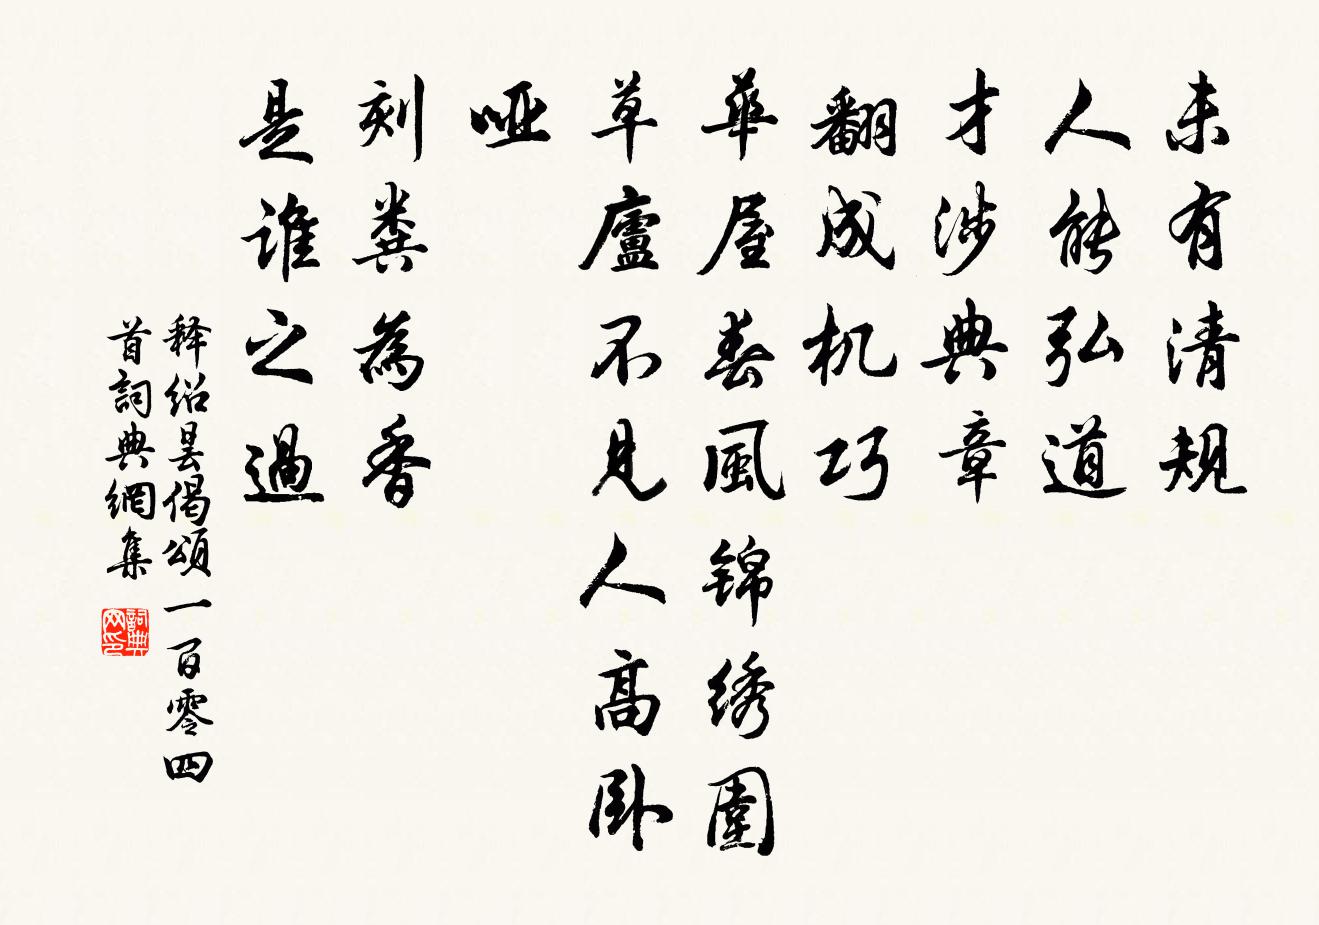 未有清规
人能弘道
才涉典章
翻成机巧
華屋春風锦绣圍
草廬不見人高卧
哑
刻粪為香
是谁之過
释绍昙偈頌一百零四
首詞典網集
詞典网印